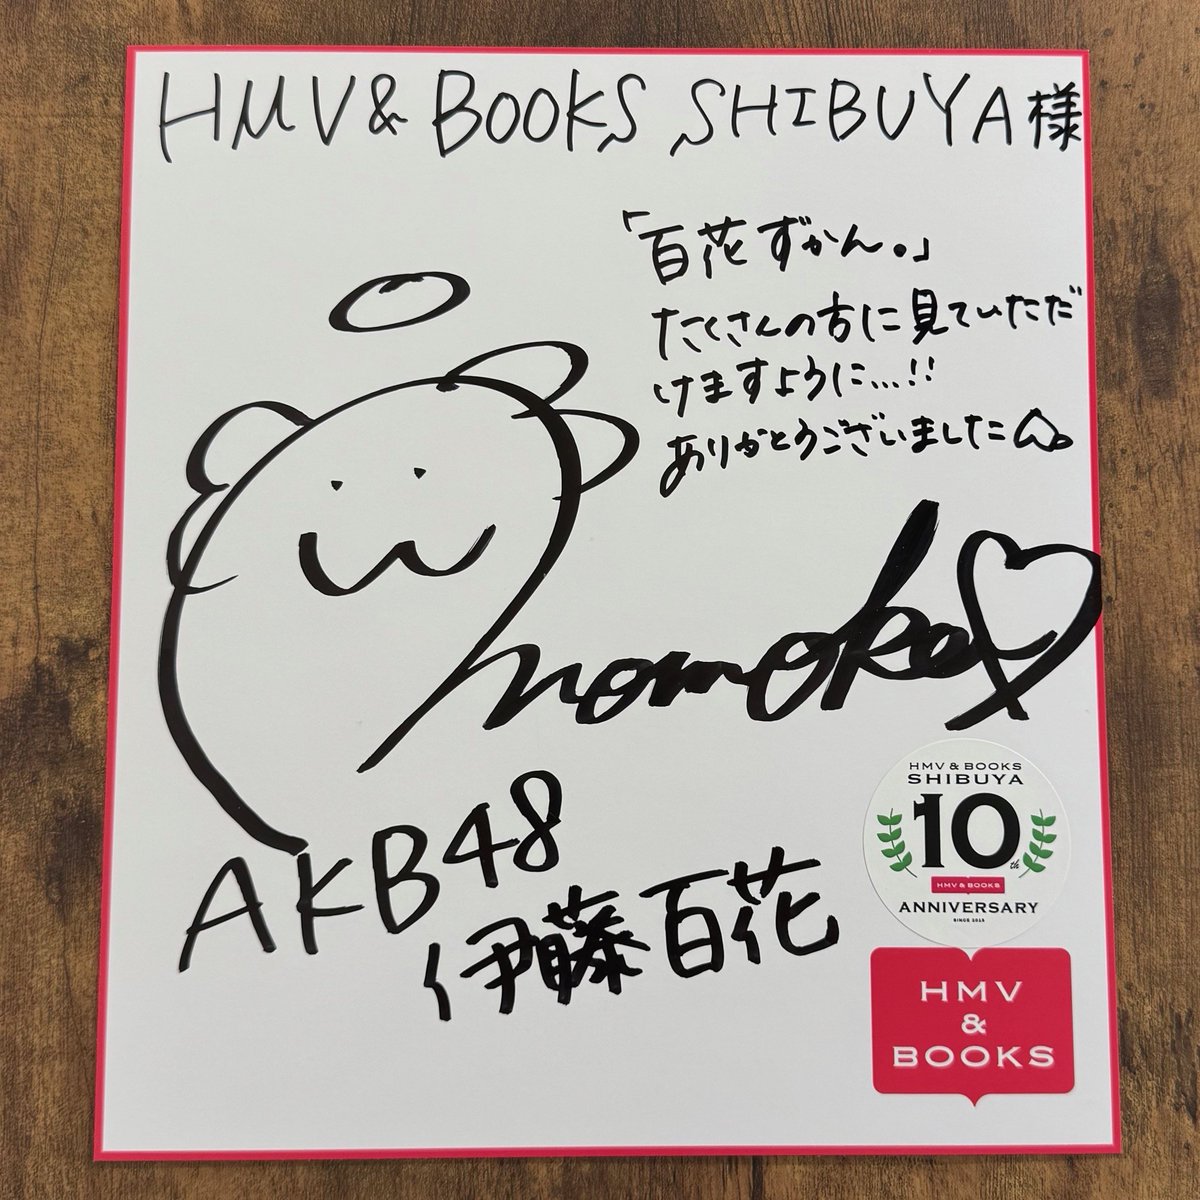 HMV & BOOKS SHIBUYA様
「百花ずかん。」
たくさんの方に見ていただ
けますように...!!
ありがとうございました
momoka
AKB48
伊藤百花
HMV & BOOKS
SHIBUYA
10th
HMV & BOOKS
ANNIVERSARY
SINCE 2015
HMV
&
BOOKS